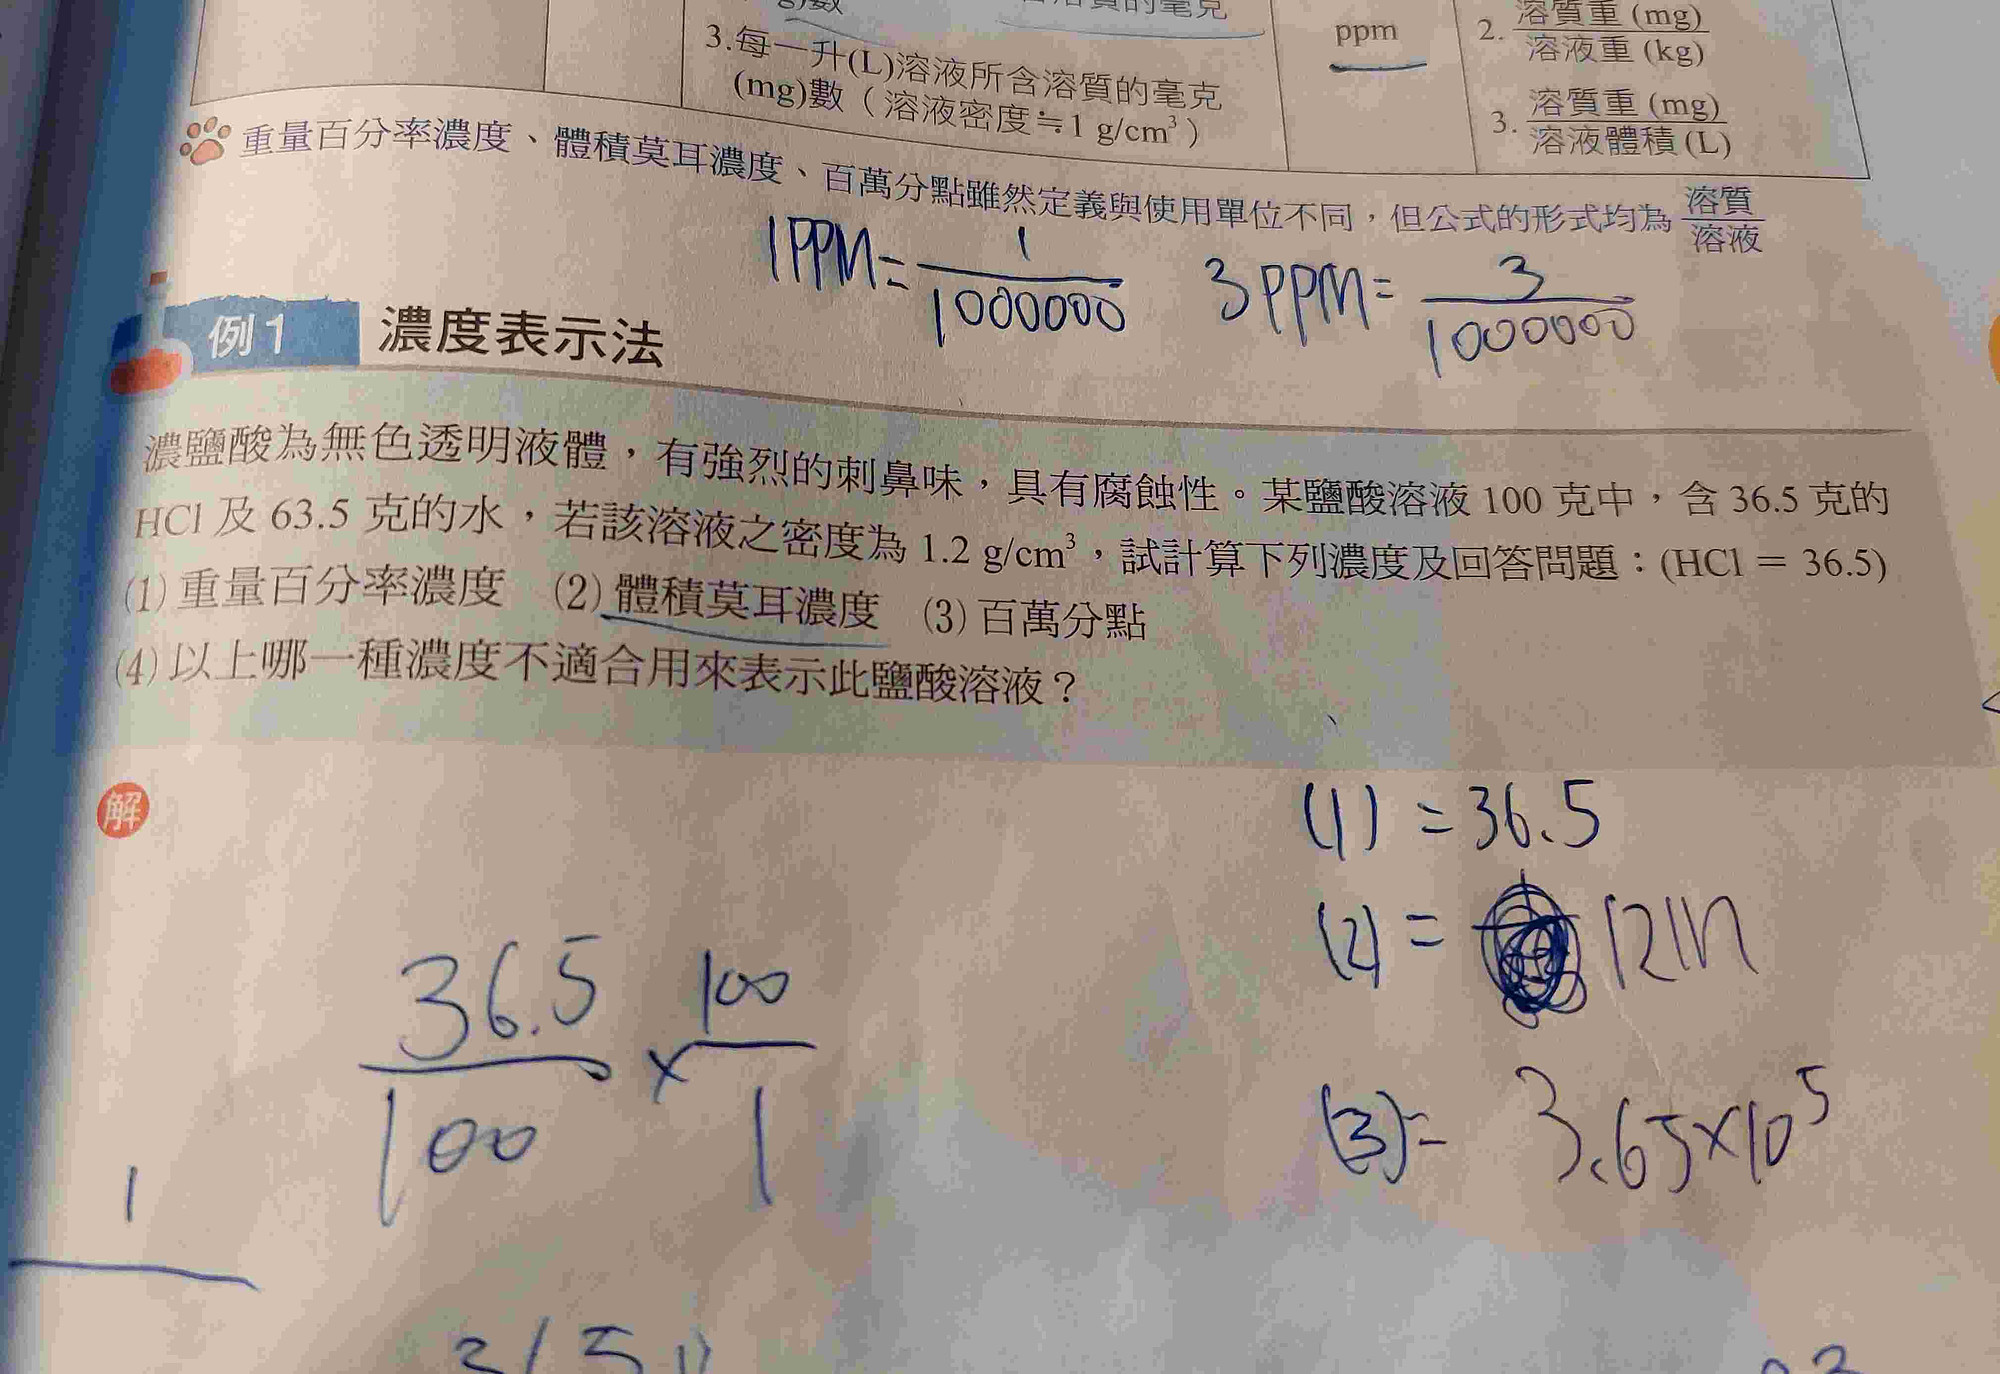 3.每一升(L)溶液所含溶質的毫克
(mg)數（溶液密度≒1 g/cm³）
ppm
2. 溶質重 (mg)
溶液重 (kg)
3. 溶質重 (mg)
溶液體積 (L)
重量百分率濃度、體積莫耳濃度、百萬分點雖然定義與使用單位不同，但公式的形式均為 溶質
溶液
1PPM= 1
1000000
3PPM= 3
1000000
例1 濃度表示法
濃鹽酸為無色透明液體，有強烈的刺鼻味，具有腐蝕性。某鹽酸溶液 100 克中，含 36.5 克的
HCl 及 63.5 克的水，若該溶液之密度為 1.2 g/cm³，試計算下列濃度及回答問題：(HCl = 36.5)
(1) 重量百分率濃度 (2) 體積莫耳濃度 (3) 百萬分點
(4) 以上哪一種濃度不適合用來表示此鹽酸溶液？
解
(1) = 36.5
(2) =
(3)= 3.65×10⁵
36.5 × 100
100 1
1